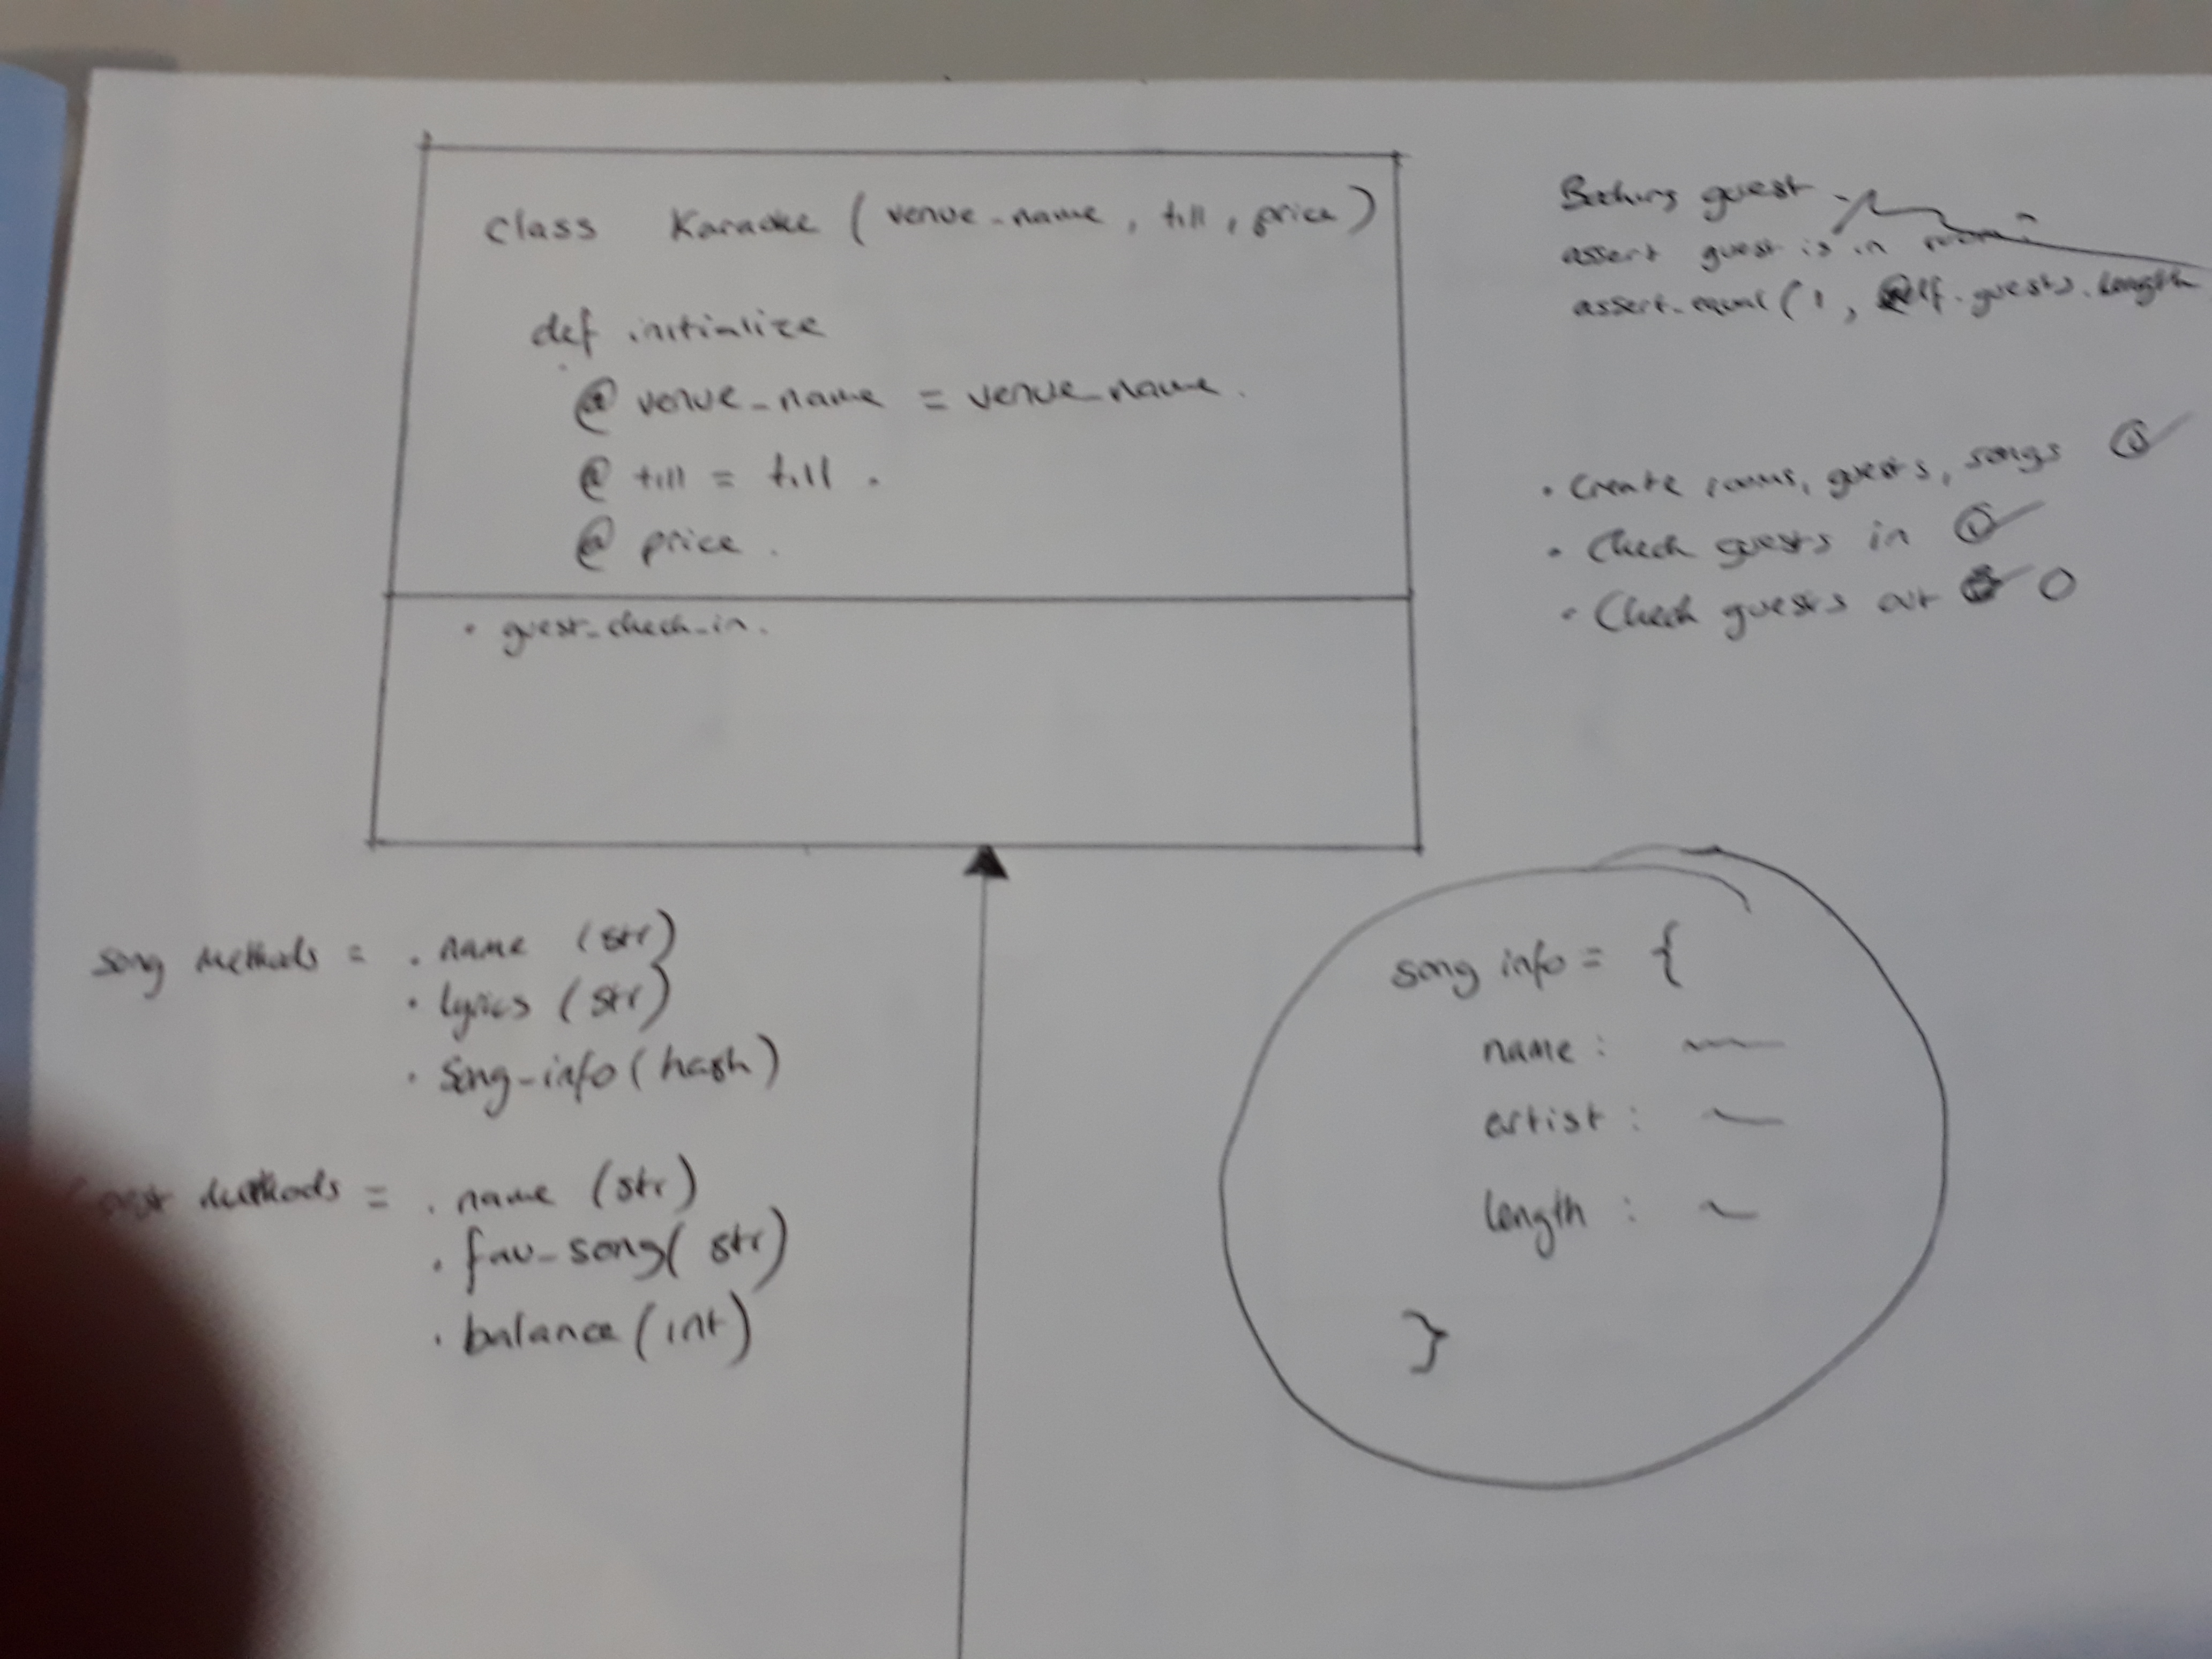 class Karaoke ( venue_name , till , price )
def initialize
@ venue_name = venue_name .
@ till = till .
@ price .
• guest_check_in .
guest
assert guest is in room
assert_equal ( 1 , self . guests . length
• Create rooms, guests, songs
• Check guests in
• Check guests out
song methods = • name (str)
• lyrics (str)
• song_info (hash)
methods = • name (str)
• fav_song( str)
• balance (int)
song info = {
name :
artist :
length :
}